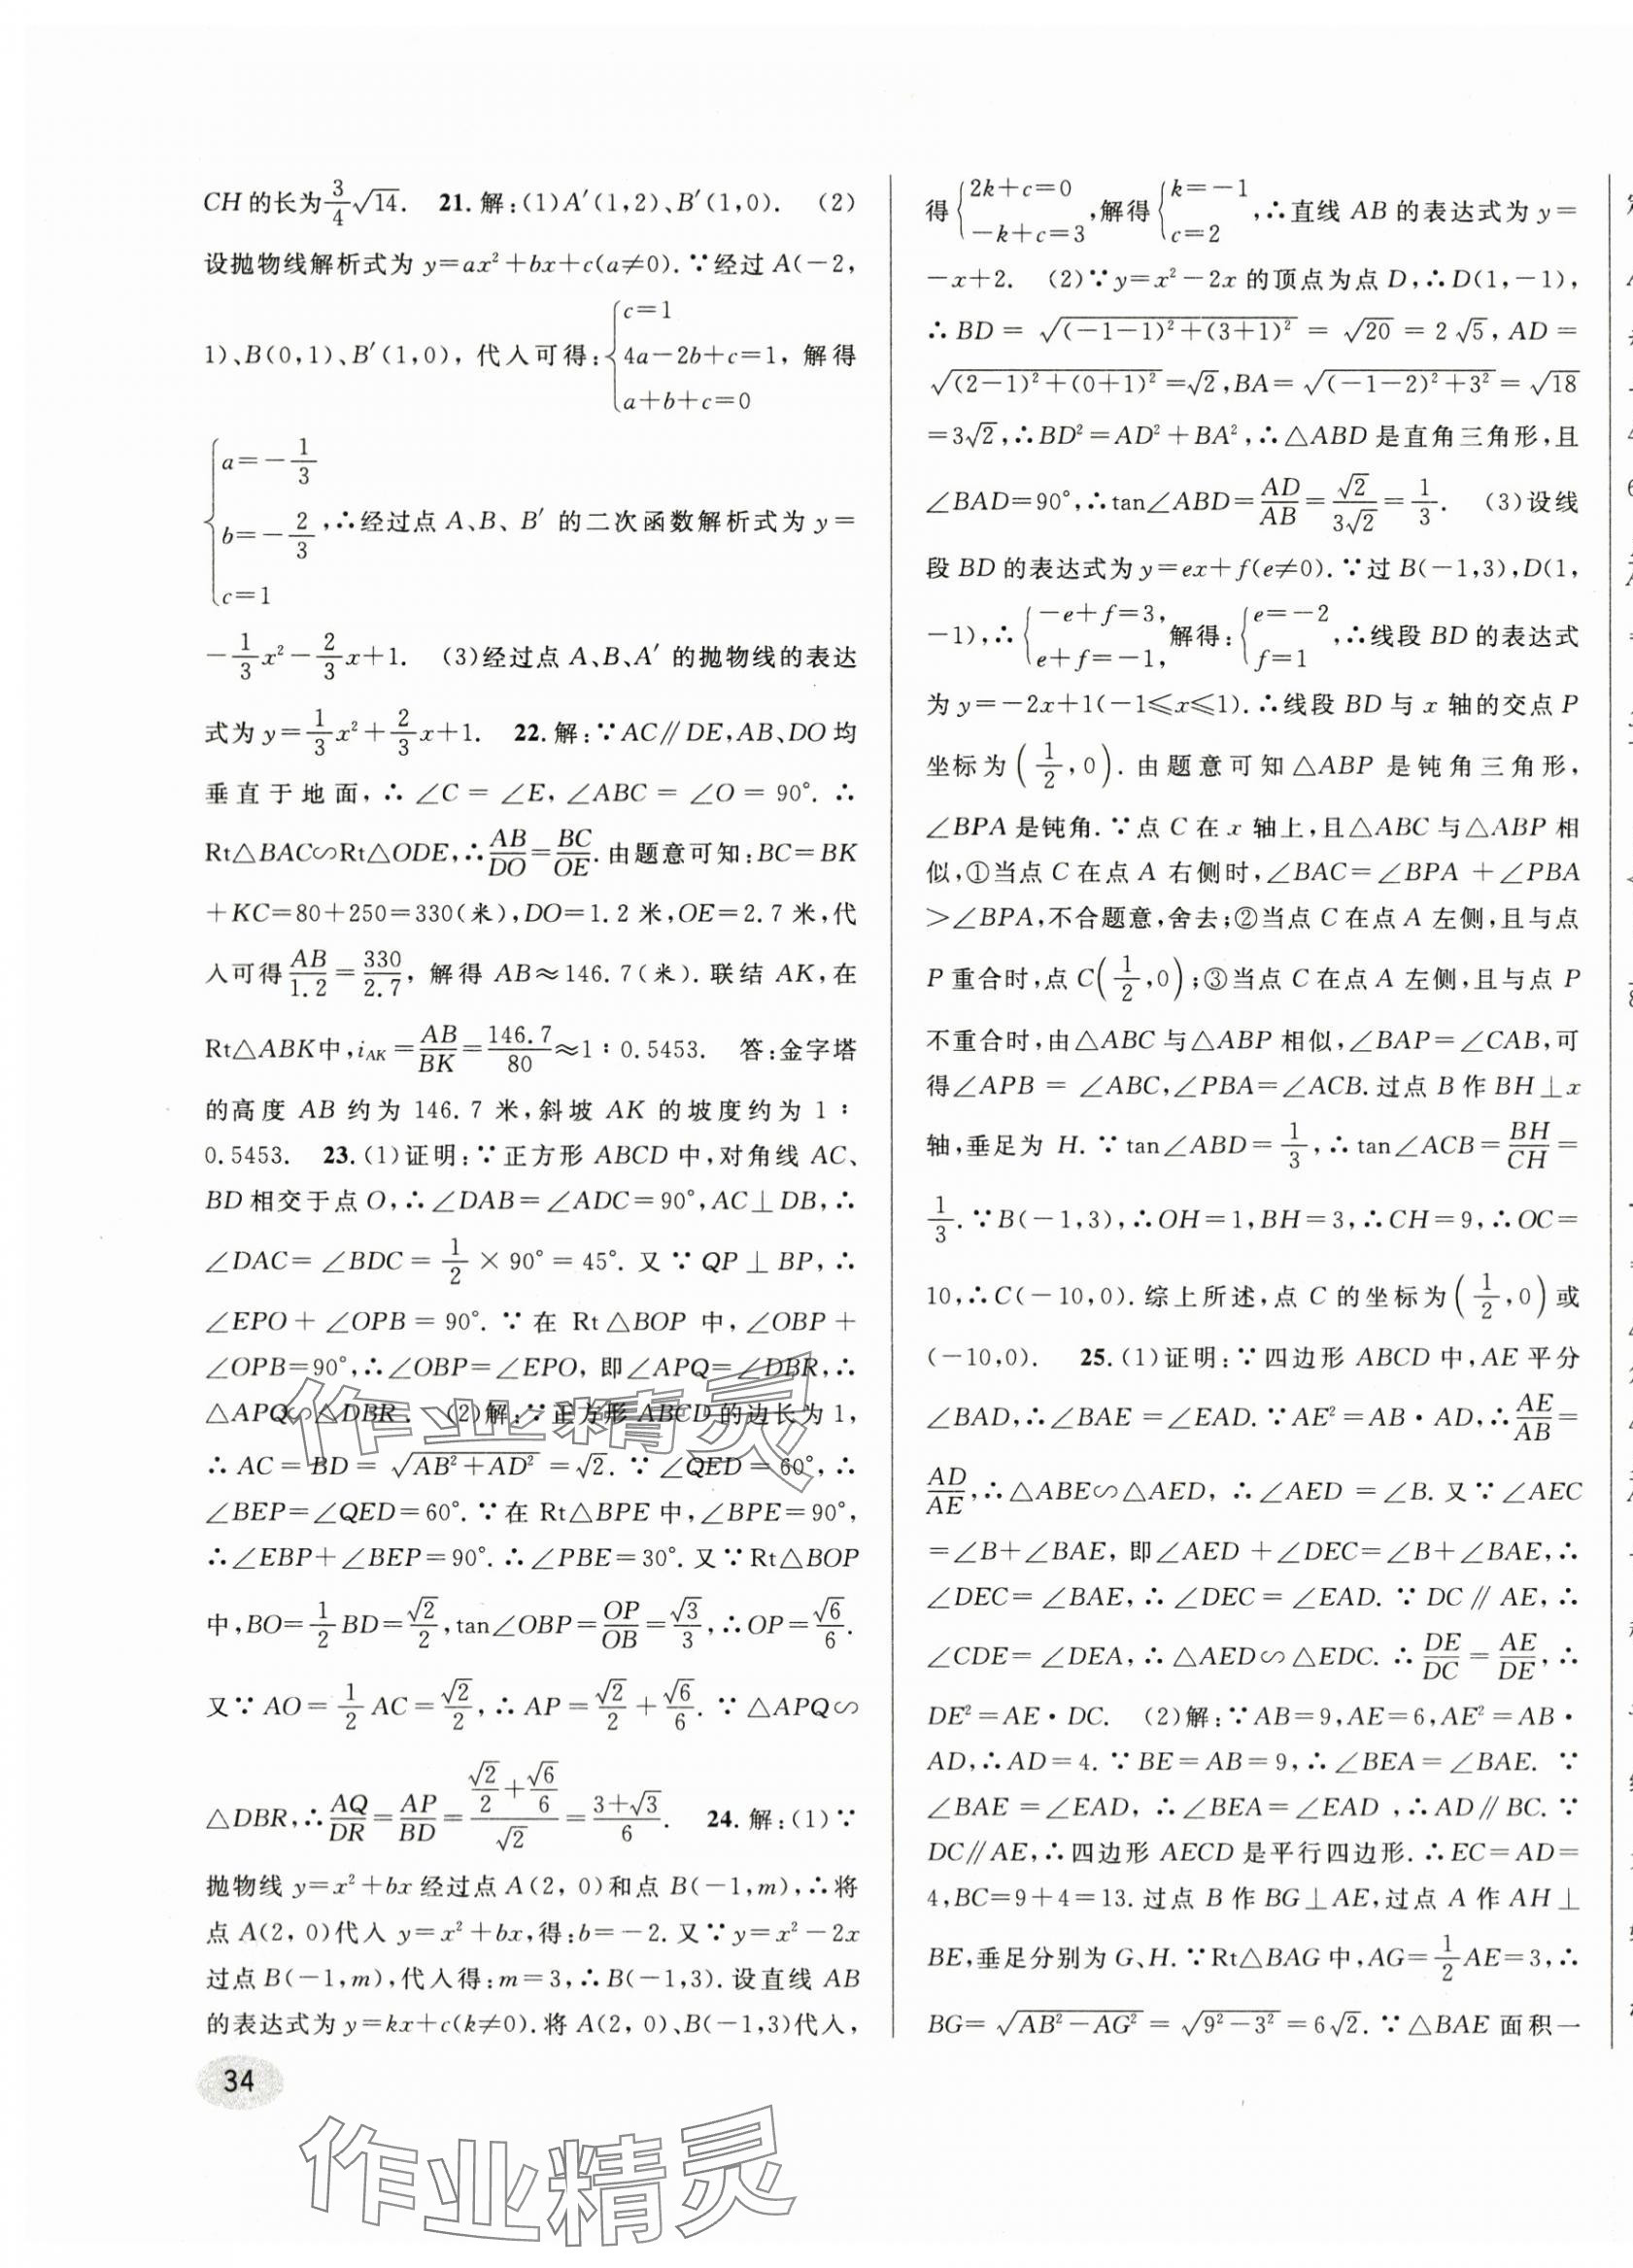 CH的长为\frac{3}{4}√14.  21.解:(1)A′(1,2)、B′(1,0).  (2)
设抛物线解析式为 y=ax²+bx+c(a≠0).∵经过 A(-2,
1)、B(0,1)、B′(1,0), 代入可得:{c=1 4a-2b+c=1, 解得 a+b+c=0
{a=-\frac{1}{3} b=-\frac{2}{3} c=1,∴经过点 A、B、B′ 的二次函数解析式为 y=
-\frac{1}{3}x²-\frac{2}{3}x+1.  (3)经过点 A、B、A′ 的抛物线的表达
式为 y=\frac{1}{3}x²+\frac{2}{3}x+1.  22.解:∵AC∥DE,AB、DO均
垂直于地面,∴∠C=∠E,∠ABC=∠O=90°.∴
Rt△BAC∽Rt△ODE,∴\frac{AB}{DO}=\frac{BC}{OE}.由题意可知:BC=BK
+KC=80+250=330(米),DO=1.2 米,OE=2.7 米,代
入可得\frac{AB}{1.2}=\frac{330}{2.7}, 解得 AB≈146.7(米).联结 AK,在
Rt△ABK中,i_{AK}=\frac{AB}{BK}=\frac{146.7}{80}≈1∶0.5453.  答:金字塔
的高度 AB 约为 146.7 米,斜坡 AK 的坡度约为 1∶
0.5453.  23.(1)证明:∵正方形 ABCD 中,对角线 AC、
BD 相交于点 O,∴∠DAB=∠ADC=90°,AC⊥DB,∴
∠DAC=∠BDC=\frac{1}{2}×90°=45°.又∵QP⊥BP,∴
∠EPO+∠OPB=90°.∵在 Rt△BOP 中,∠OBP+
∠OPB=90°,∴∠OBP=∠EPO, 即∠APQ=∠DBR,∴
△APQ∽△DBR.  (2)解:∵正方形 ABCD 的边长为 1,
∴AC=BD=√(AB²+AD²)=√2.∵∠QED=60°,∴
∠BEP=∠QED=60°.∵在 Rt△BPE 中,∠BPE=90°,
∴∠EBP+∠BEP=90°.∴∠PBE=30°.又∵Rt△BOP
中,BO=\frac{1}{2}BD=\frac{√2}{2},tan∠OBP=\frac{OP}{OB}=\frac{√3}{3},∴OP=\frac{√6}{6}.
又∵AO=\frac{1}{2}AC=\frac{√2}{2},∴AP=\frac{√2}{2}+\frac{√6}{6}.∵△APQ∽
△DBR,∴\frac{AQ}{DR}=\frac{AP}{BD}=\frac{\frac{√2}{2}+\frac{√6}{6}}{√2}=\frac{3+√3}{6}.  24.解:(1)∵
抛物线 y=x²+bx 经过点 A(2, 0)和点 B(-1,m),∴将
点 A(2, 0)代入 y=x²+bx,得:b=-2.又∵y=x²-2x
过点 B(-1,m),代入得:m=3,∴B(-1,3).设直线 AB
的表达式为 y=kx+c(k≠0).将 A(2, 0)、B(-1,3)代入,
34
得{2k+c=0 -k+c=3,解得{k=-1 c=2,∴直线 AB 的表达式为 y=
-x+2.  (2)∵y=x²-2x 的顶点为点 D,∴D(1,-1),
∴BD=√((-1-1)²+(3+1)²)=√20=2√5,AD=
√((2-1)²+(0+1)²)=√2,BA=√((-1-2)²+3²)=√18
=3√2,∴BD²=AD²+BA²,∴△ABD 是直角三角形,且
∠BAD=90°,∴tan∠ABD=\frac{AD}{AB}=\frac{√2}{3√2}=\frac{1}{3}.  (3)设线
段 BD 的表达式为 y=ex+f(e≠0).∵过 B(-1,3),D(1,
-1),∴{-e+f=3, e+f=-1,解得:{e=-2 f=1,∴线段 BD 的表达式
为 y=-2x+1(-1≤x≤1).∴线段 BD 与 x 轴的交点 P
坐标为(\frac{1}{2},0).由题意可知△ABP 是钝角三角形,
∠BPA 是钝角.∵点 C 在 x 轴上,且△ABC 与△ABP 相
似,①当点 C 在点 A 右侧时,∠BAC=∠BPA+∠PBA
>∠BPA,不合题意,舍去;②当点 C 在点 A 左侧,且与点
P 重合时,点 C(\frac{1}{2},0);③当点 C 在点 A 左侧,且与点 P
不重合时,由△ABC 与△ABP 相似,∠BAP=∠CAB,可
得∠APB=∠ABC,∠PBA=∠ACB.过点 B 作 BH⊥x
轴,垂足为 H.∵tan∠ABD=\frac{1}{3},∴tan∠ACB=\frac{BH}{CH}=
\frac{1}{3}.∵B(-1,3),∴OH=1,BH=3,∴CH=9,∴OC=
10,∴C(-10,0).综上所述,点 C 的坐标为(\frac{1}{2},0)或
(-10,0).  25.(1)证明:∵四边形 ABCD 中,AE 平分
∠BAD,∴∠BAE=∠EAD.∵AE²=AB·AD,∴\frac{AE}{AB}=
\frac{AD}{AE},∴△ABE∽△AED,∴∠AED=∠B.又∵∠AEC
=∠B+∠BAE, 即∠AED+∠DEC=∠B+∠BAE,∴
∠DEC=∠BAE,∴∠DEC=∠EAD.∵DC∥AE,∴
∠CDE=∠DEA,∴△AED∽△EDC.∴\frac{DE}{DC}=\frac{AE}{DE},∴
DE²=AE·DC.  (2)解:∵AB=9,AE=6,AE²=AB·
AD,∴AD=4.∵BE=AB=9,∴∠BEA=∠BAE.∵
∠BAE=∠EAD,∴∠BEA=∠EAD,∴AD∥BC.∵
DC∥AE,∴四边形 AECD 是平行四边形.∴EC=AD=
4,BC=9+4=13.过点 B 作 BG⊥AE,过点 A 作 AH⊥
BE,垂足分别为 G、H.∵Rt△BAG 中,AG=\frac{1}{2}AE=3,∴
BG=√(AB²-AG²)=√(9²-3²)=6√2.∵△BAE 面积一
作业精灵
作业精灵